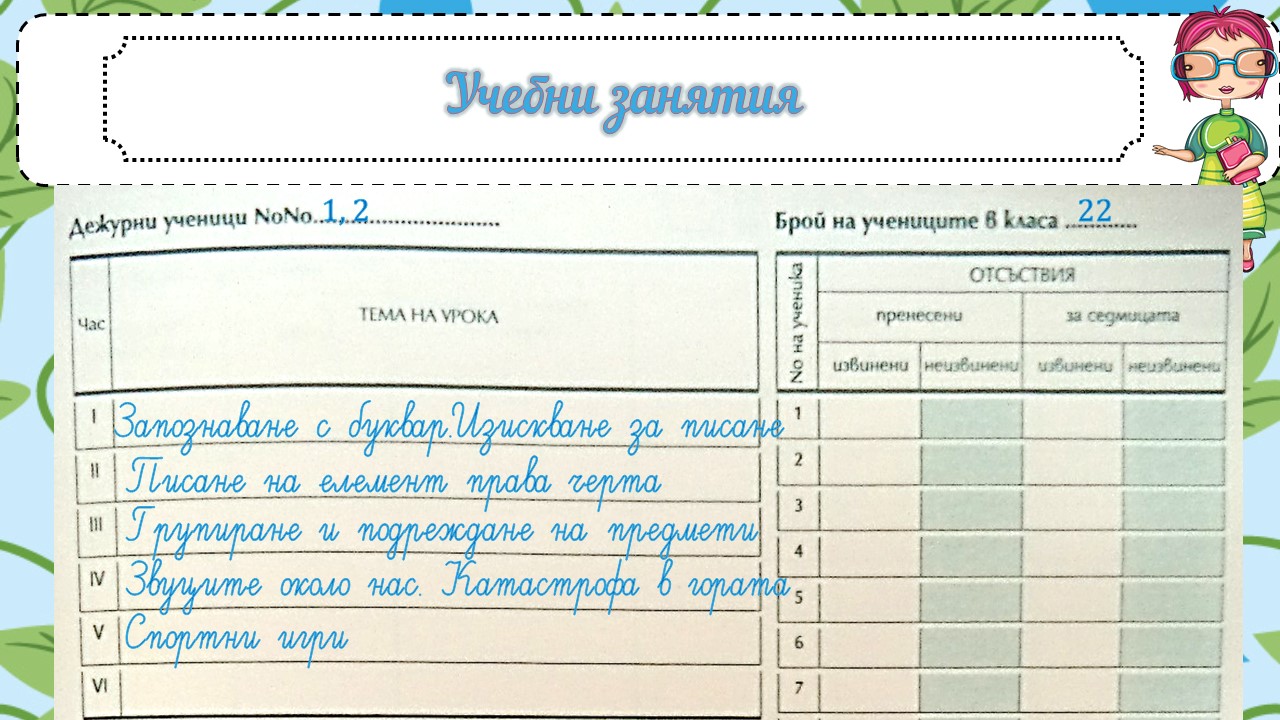 Учебни занятия
Дежурни ученици NoNo. 1, 2
Брой на учениците в класа 22
Час
ТЕМА НА УРОКА
No на ученика
ОТСЪСТВИЯ
пренесени
за седмицата
извинени
неизвинени
извинени
неизвинени
I Запознаване с буквар.Изискване за писане
II Писане на елемент права черта
III Групиране и подреждане на предмети
IV Звуците около нас. Катастрофа в гората
V Спортни игри
VI
1
2
3
4
5
6
7